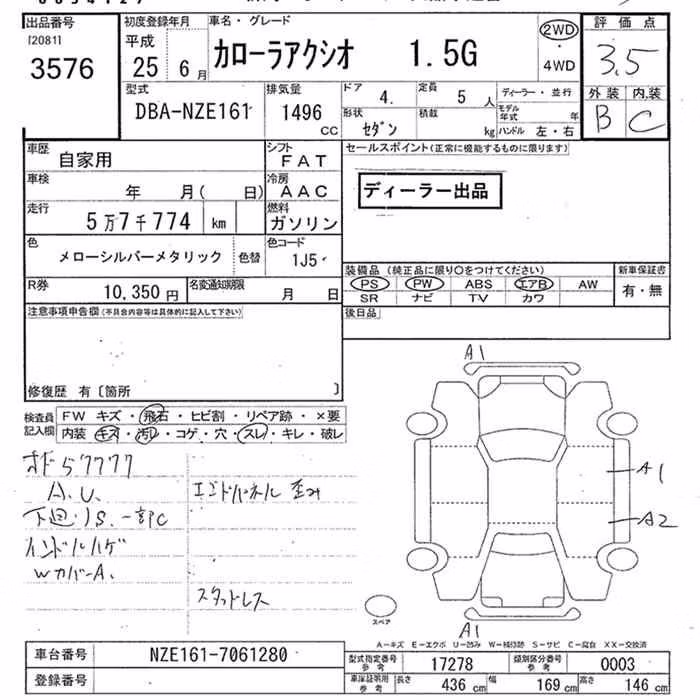 出品番号
[20811
3576
初度登録年月
平成
25 6月
車名・グレード
カローラアクシオ 1.5G
2WD
4WD
評価点
3.5
外装 内装
B C
型式
DBA-NZE161
排気量
1496
CC
ドア 4. 定員 5 人
形状 セダン 積載 kg
ディーラー・並行
モデル年式 年
ハンドル 左・右
車歴 自家用
シフト FAT
車検 年 月( 日)
冷房 AAC
走行 5万7千774 km
燃料 ガソリン
色 メローシルバーメタリック 色替
色コード 1J5
R券 10,350円
名変通知期限 月 日
セールスポイント(正常に機能するものに限ります)
ディーラー出品
装備品(純正品に限り○をつけてください)
PS PW ABS エアB AW
SR ナビ TV カワ
新車保証書
有・無
後日品
注意事項申告欄(不具合内容等は具体的に記入して下さい)
修復歴 有〔箇所 〕
検査員記入欄
FW キズ・飛石・ヒビ割・リペア跡・×要
内装 キズ・汚れ・コゲ・穴・スレ・キレ・破レ
57777
A.U.
下廻りS.一部C
ハンドルハゲ
Wカバー A.
エンドパネル歪み
スタッドレス
A1
A1
A2
A1
スペア
A-キズ E-エクボ U-凹み W-補修跡 S-サビ C-腐食 XX-交換済
車台番号 NZE161-7061280
登録番号
型式指定番号参考 17278
類別区分番号参考 0003
車庫証明用参考 長さ 436 cm 幅 169 cm 高さ 146 cm